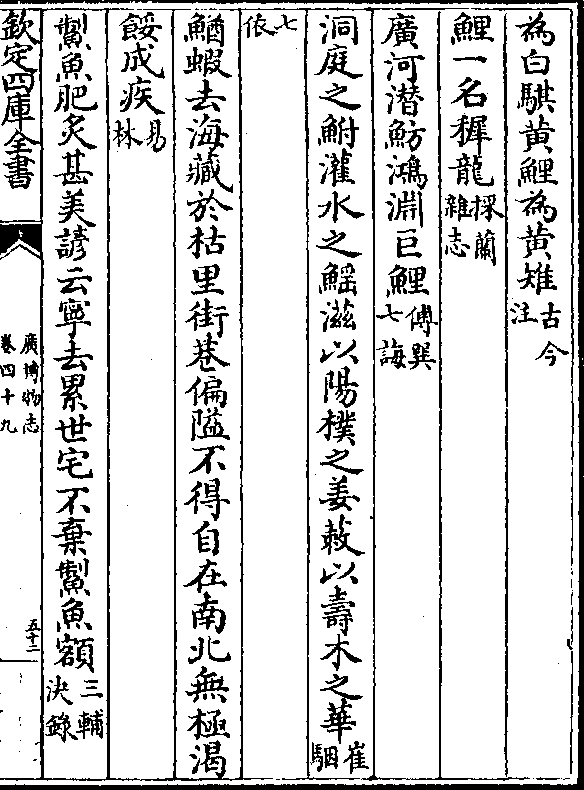 為白騏黄鯉為黄雉古今注
鯉一名穉龍採蘭雜志
廣河潜魴鴻淵巨鯉傅巽七誨
洞庭之鮒灌水之鰩滋以陽樸之姜蔌以壽木之華崔駰
七依
鰌蝦去海藏於枯里街巷偏隘不得自在南北無極渴
餒成疾易林
鮆魚肥炙甚美諺云寧去累世宅不棄鮆魚額三輔決錄
欽定四庫全書
廣博物志
卷四十九
五十二